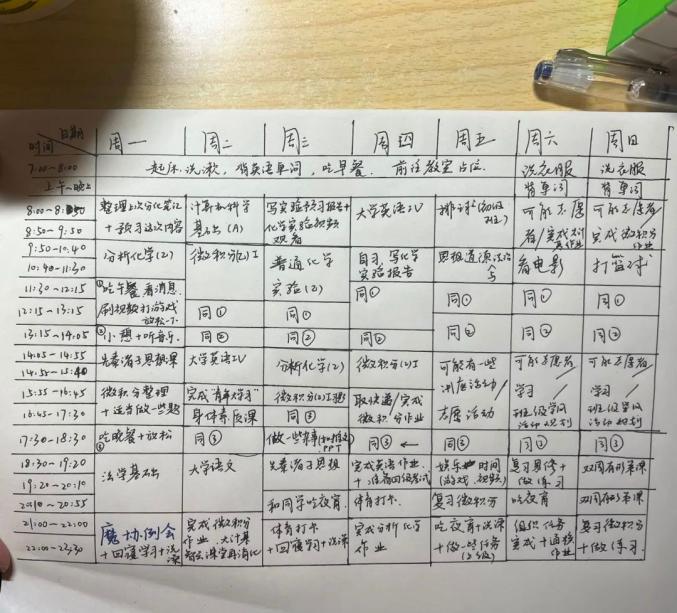 日期
时间
周一 周二 周三 周四 周五 周六 周日
7:00~8:00 起床.洗漱,背英语单词,吃早餐.前往教室占位. 洗衣服 洗衣服
上午~晚上 背单词 背单词
8:00~8:50 整理上次分化笔记 计算机科学 写实验预习报告+ 大学英语IV 排球 可能志愿 可能志愿者
8:50~9:50 +预习这次内容 基础(A) 化学实验视频 者/完成 作业 完成微积分
观看 作业
9:50~10:40 分析化学(2) 微积分(2)I 普通化学 自习,写化学 思想道德法治 看电影 打篮球
10:40~11:30 实验(2) 实验报告
11:30~12:15 ①吃午餐看消息 同① 同① 同① 同①
12:15~13:15 刷视频打游戏 同① 同①
放松一下
13:15~14:05 ②小憩+听音乐. 同② 同② 同② 同② 同② 同②
14:05~14:55 大学英语IV 分析化学(2) 微积分(2)I 可能有一些 可能志愿者 可能志愿者
14:55~15:40 活动
15:55~16:45 微积分整理 完成"青年大学习" 微积分(2)I 取快递/完成 志愿活动 学习 学习
16:45~17:30 +适当做一些题 身体素质课 同③ 微积分作业 班级学风 班级学风
17:30~18:30 吃晚餐+放松 同③ 做一些杂事 PPT 同③ ← 同③ 同③ 同③
18:30~19:20 法学基础 大学语文 完成英语作业 娱乐时间 复习 双周有形策课
19:20~20:10 +准备四级考试 (游戏.视频) 做练习
20:10~20:55 和同学吃夜宵 体育打卡. 复习微积分 吃夜宵 双周有形策课
21:00~22:00 魔协例会 完成微积分 体育打卡 完成分析化学 吃夜宵+洗澡 组织任务 复习微积分
22:00~23:30 +回寝学习+洗澡 作业 +回寝学习+洗澡 作业 +做一些任务 完成 +做练习.